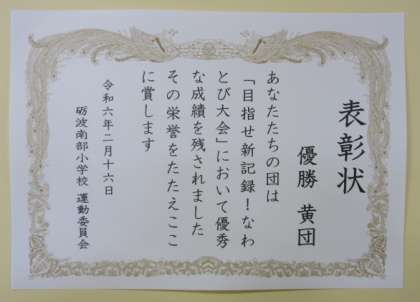 表彰状
優勝 黄団
あなたたちの団は
「目指せ新記録!なわ
とび大会」において優秀
な成績を残されました
その栄誉をたたえここ
に賞します
令和六年二月十六日
砺波南部小学校 運動委員会